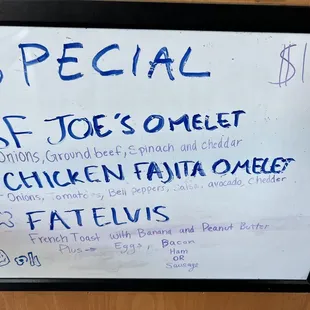 SPECIAL $1
SF JOE'S OMELET
Onions, Ground beef, Spinach and cheddar
CHICKEN FAJITA OMELET
Onions, Tomatoes, Bell peppers, Salsa, avocado, Chedder
FAT ELVIS
French Toast with Banana and Peanut Butter
Plus → Eggs, Bacon
Ham
OR
Sausage